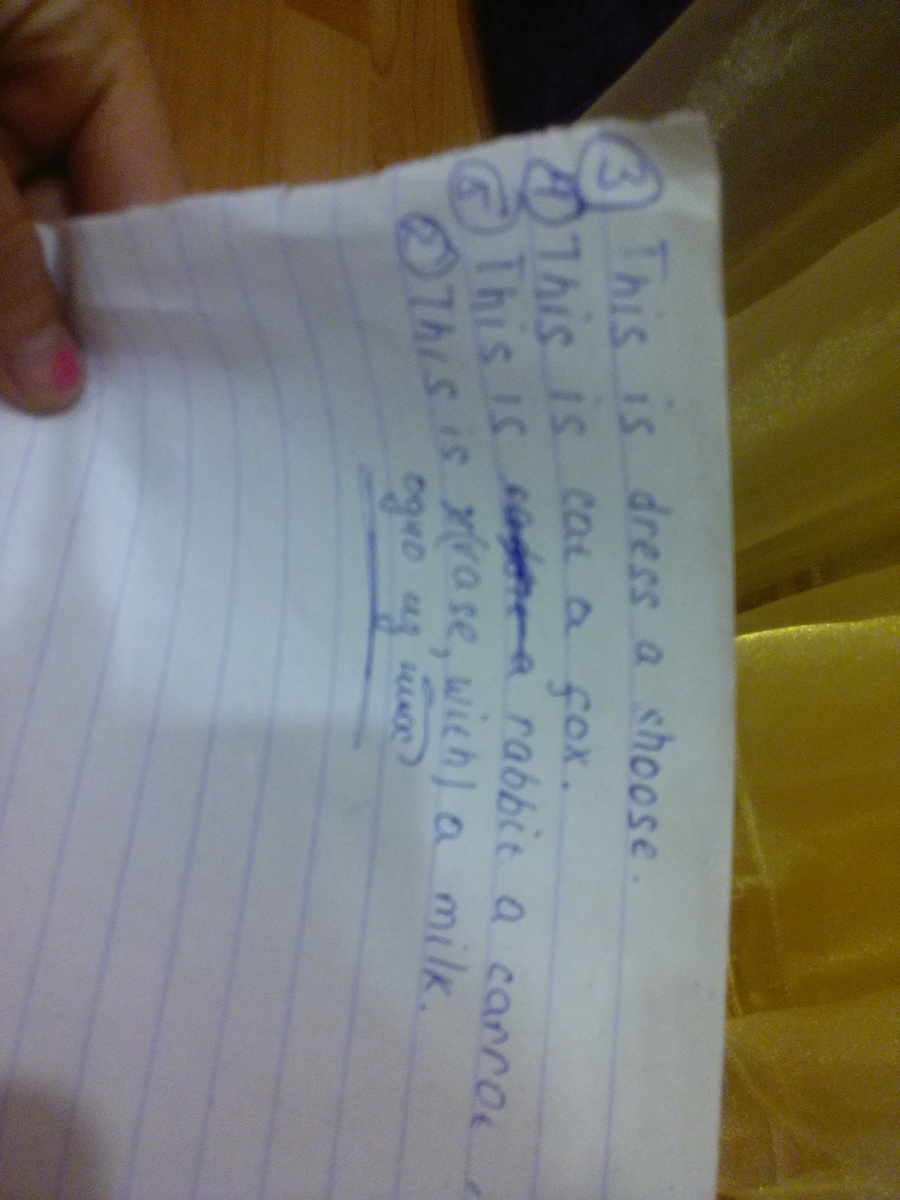 ③ This is dress a shoose.
④ This is cat a fox.
⑤ This is a rabbit a carrot
② This is (vase, wich) a milk.
одно из них